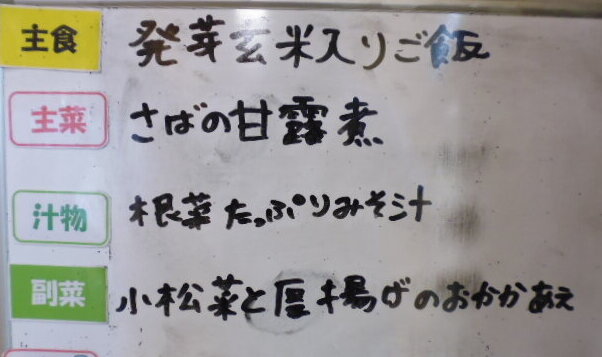 主食 発芽玄米入りご飯
主菜 さばの甘露煮
汁物 根菜たっぷりみそ汁
副菜 小松菜と厚揚げのおかかあえ